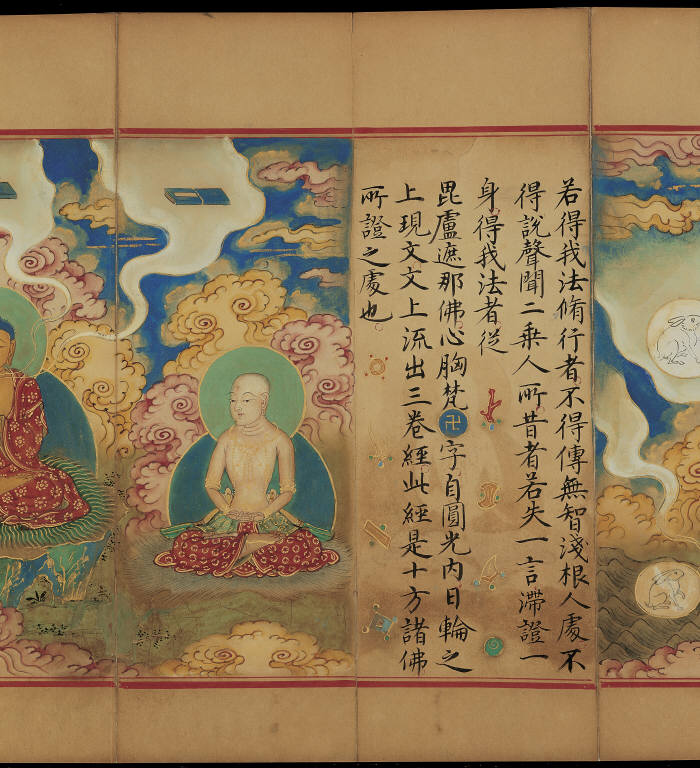 若得我法脩行者不得傳無智淺根人處不
得說聲聞二乗人所昔者若失一言滯證一
身得我法者從
毘盧遮那佛心胸梵卍字自圓光内日輪之
上現文文上流出三卷經此經是十方諸佛
所證之處也